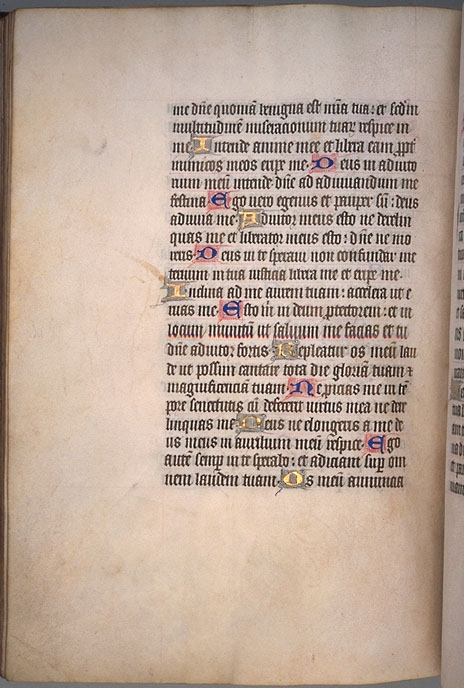 me dñe quoniã benigna est mĩa tua: et scdm
multitudinẽ miseracionum tuaꝝ respice in
me Intende anime mee et libera eam ꝓpt̃
inimicos meos eripe me. Deus in adiuto
rium meũ intende: dñe ad adiuuandum me
festina Ego vero egenus et pauper sũ: deus
adiuua me. Adiutor meus esto ne derelin
quas me et liberator meus esto: dñe ne mo
reris. Deus in te speraui non confundar in e
ternum in tua iusticia libera me et eripe me.
Inclina ad me aurem tuam: accelera ut e
ruas me Esto m̃ in deum ꝓtectorem: et in
locum munitũ ut saluum me facias et tu
dñe adiutor fortis Repleatur os meũ lau
de ut possim cantare tota die gloriã tuam ⁊
magnificenciam tuam. Ne ꝓicias me in tẽ
pore senectutis cũ defecerit virtus mea ne dere
linquas me Deus ne elongeris a me de
us meus in auxilium meũ respice. Ego
autẽ semp̱ in te sperabo: et adiciam suꝑ om
nem laudem tuam. Os meũ annuncia